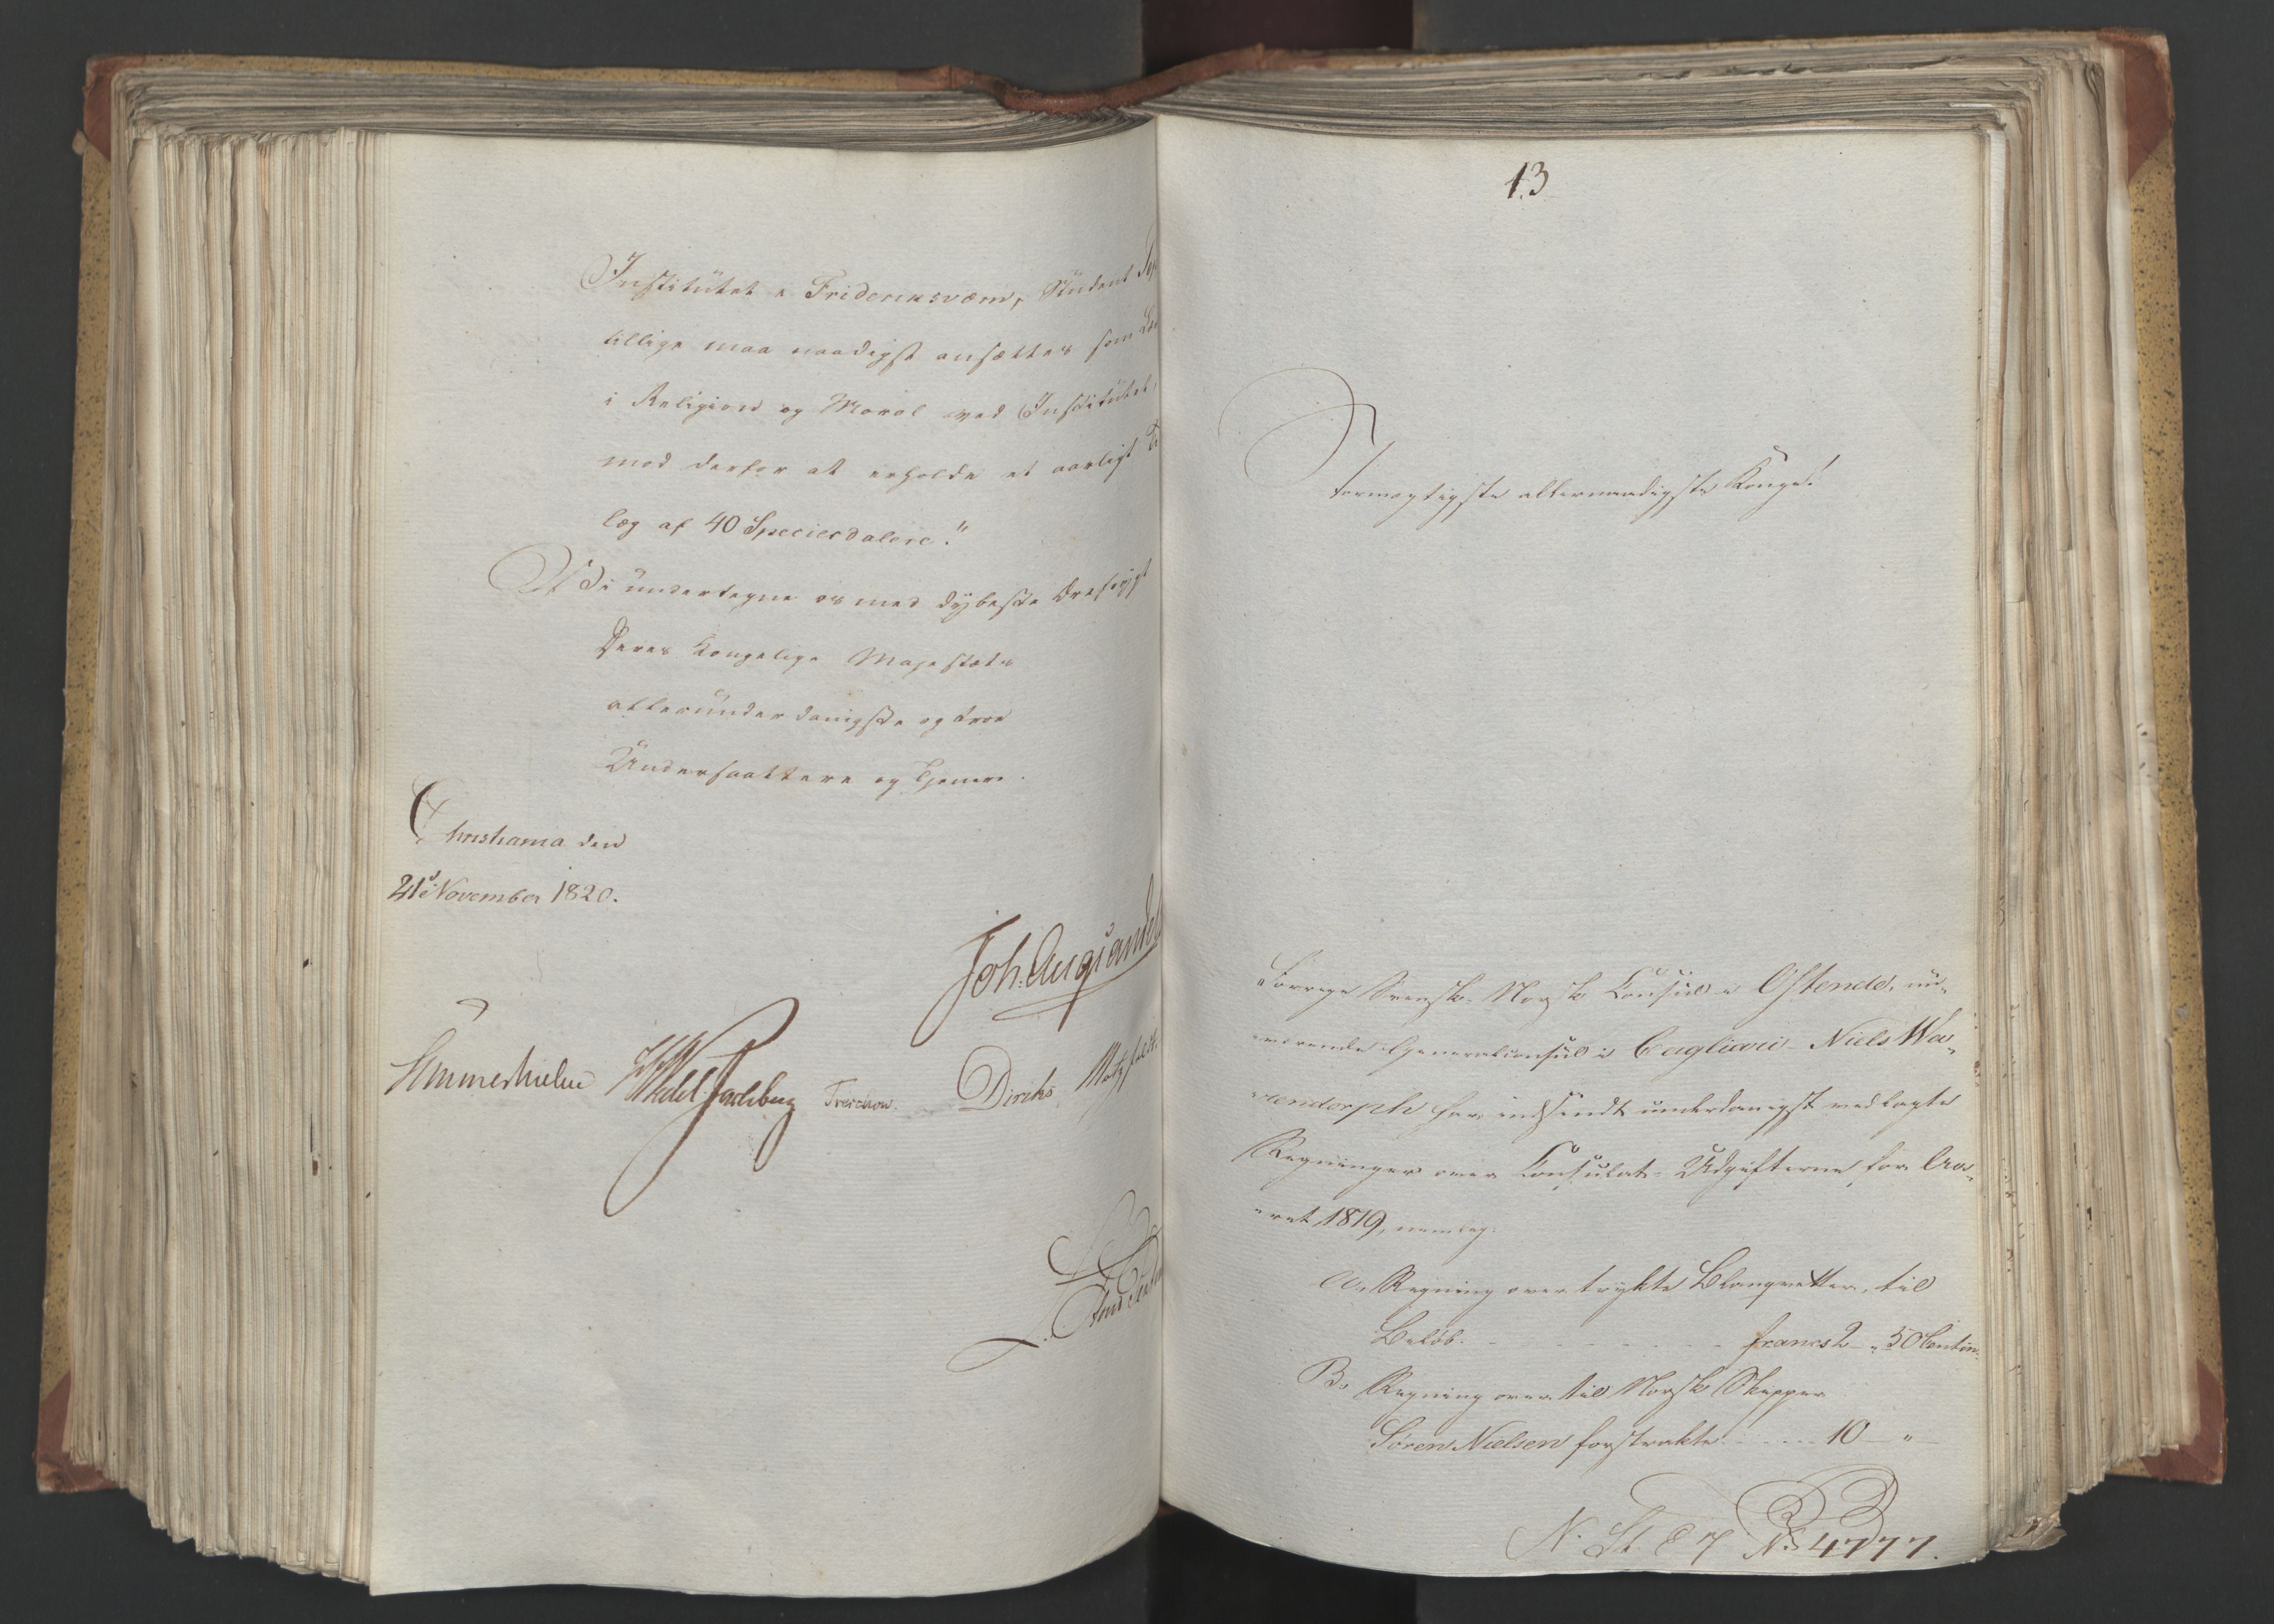 Institütet i Frideriksværn, Student
tillige maa naadigst ansættes som
i Religion og Moral ved Institütet,
mod derfor at erholde et aarligt
læg af 40 Speciesdalere."
Vi ündertegne os med dybeste Ærefrygt
Deres Kongelige Majestæts
alleründerdanigste og troe
Undersaattere og Tjenere.
Christiania den
21de November 1820.
Joh. Aug. Sandels
Sommerhielm Wedel Jarlsberg Treschow. Diriks Motzfeldt.
13
Stormægtigste allernaadigste Konge!
"Forrige Svensk-Norsk Consul i Ostende, nü-
værende Generalconsul i Cagliari Niels Wa-
"rendorph har indsendt ünderdanigst vedlagte
Regninger over Consulats-Udgifterne for Aa-
"ret 1819, nemlig:
A. Regning over trykte Blanqvetter, til
Beløb - - - francs 2 - 50 Centim.
B. Regning over til Norsk Skipper
Søren Nielsen forstrakte - - - 10 - "
N. St. E 7 No 4777.